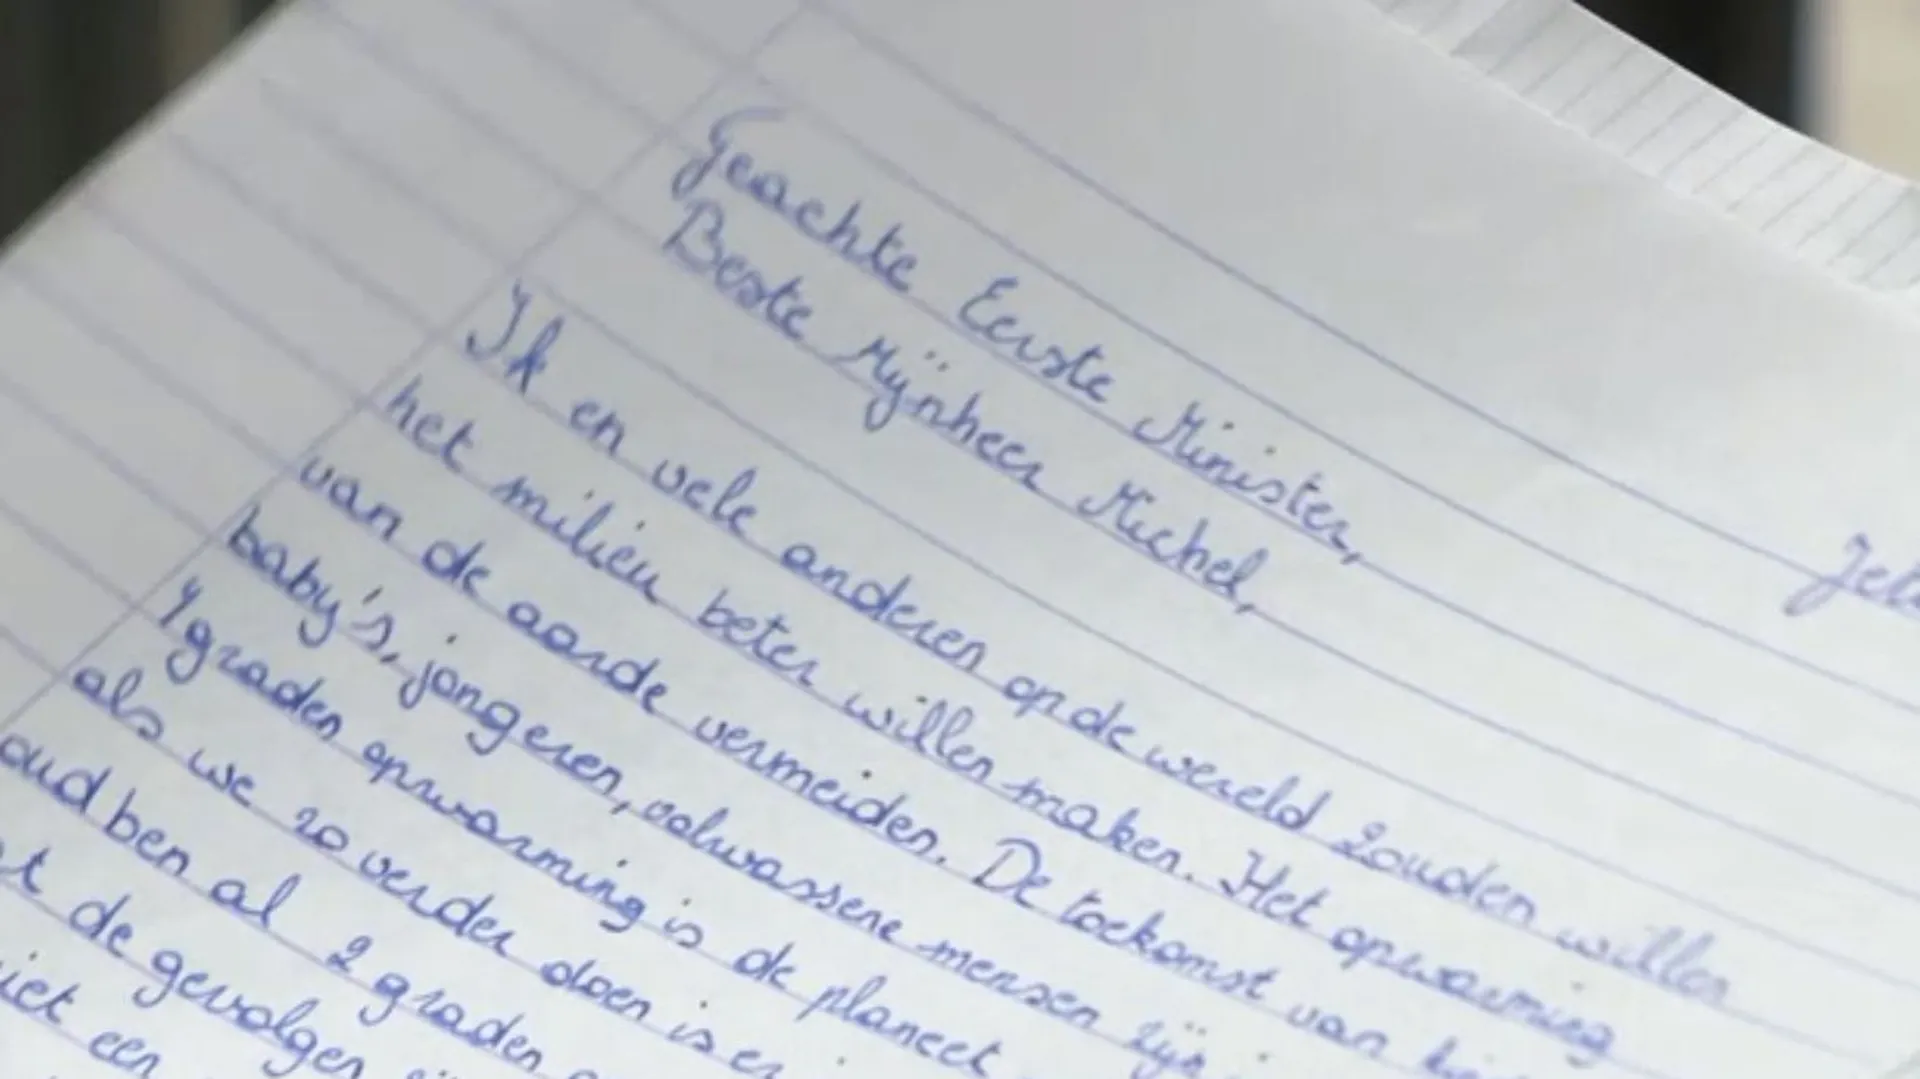 Geachte Eerste Minister,
Beste Mijnheer Michel,
Ik en vele anderen op de wereld zouden willen
het milieu beter willen maken. Het opwarming
van de aarde vermeiden. De toekomst van
baby's, jongeren, volwassene mensen zijn
4 graden opwarming is de planeet
als we zo verder doen is er
oud ben al 2 graden
de gevolgen
een